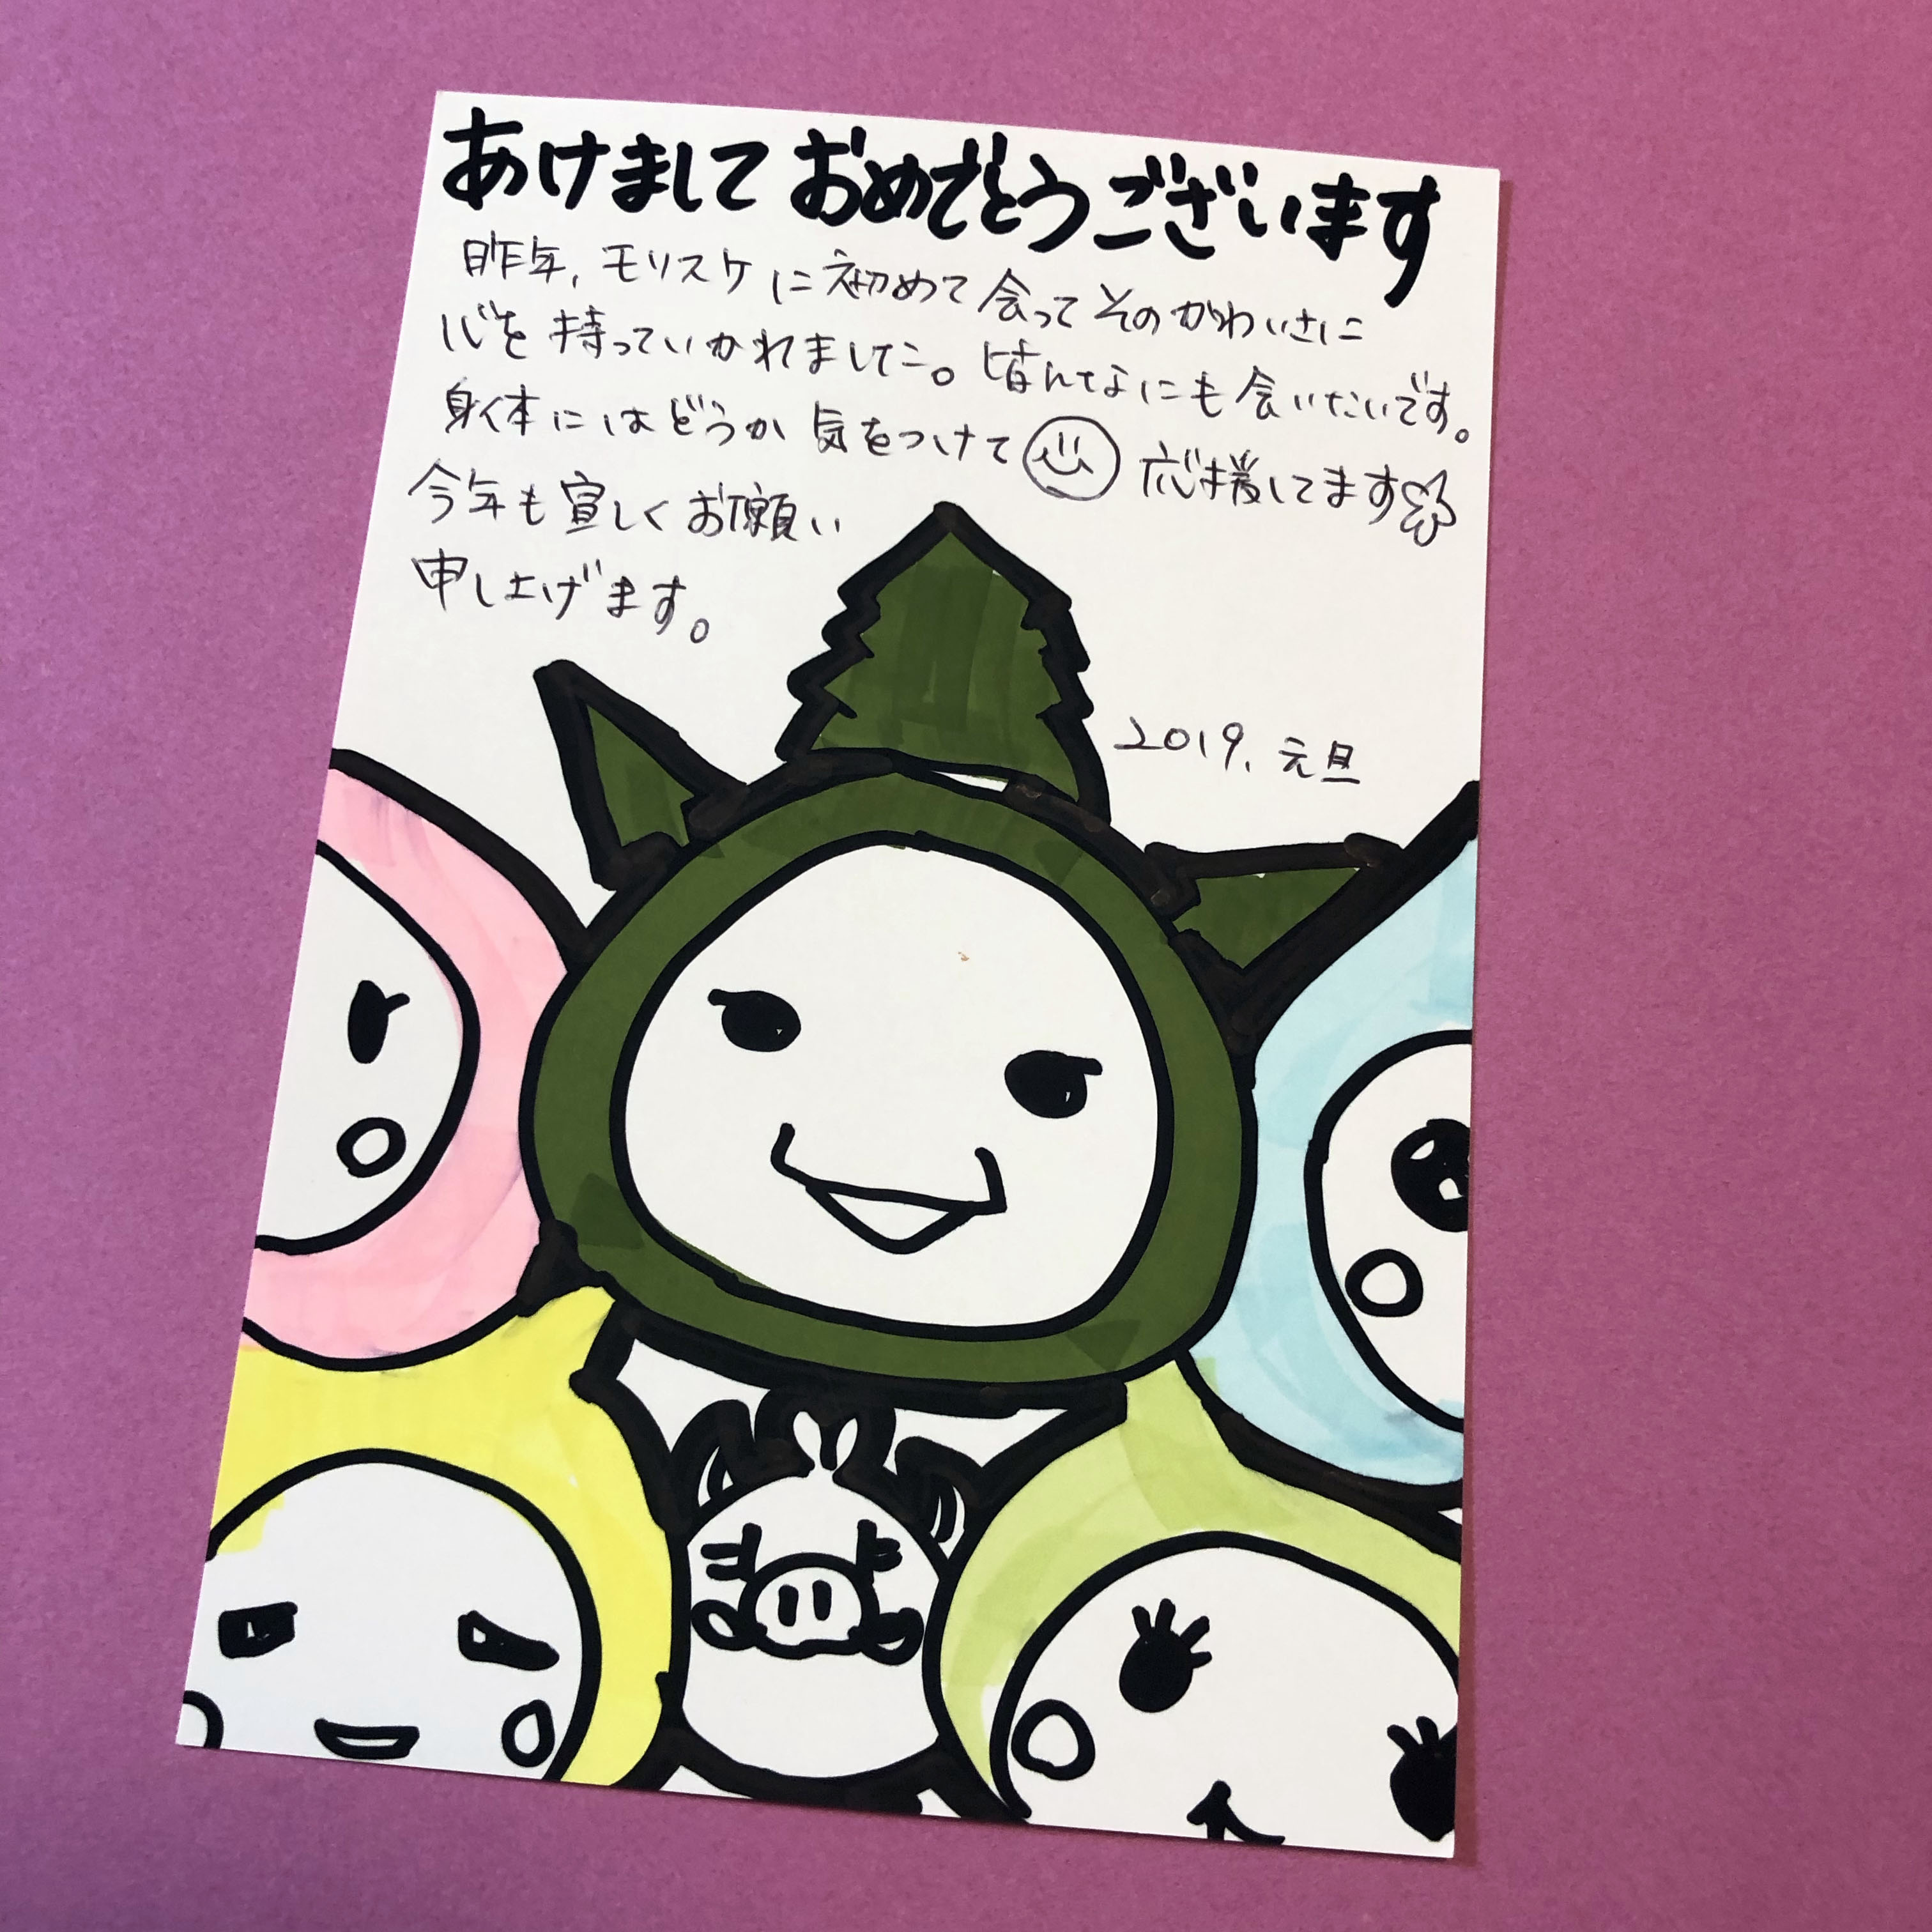 あけまして おめでとうございます
昨年、モリスケに初めて会ってそのかわいさに
心を持っていかれました。皆んなにも会いたいです。
身体にはどうか気をつけて 応援してます
今年も宜しくお願い
申し上げます。
2019. 元旦